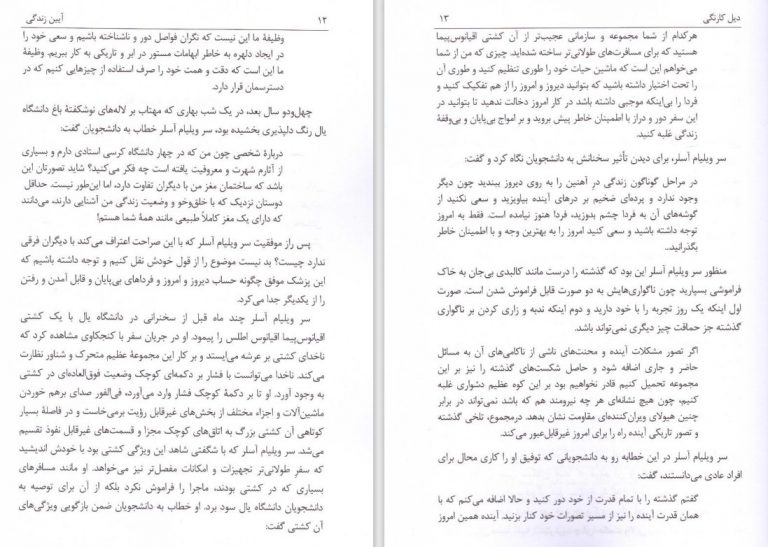 ۱۲ آیین زندگی
وظیفهٔ ما این نیست که نگران فواصل دور و ناشناخته باشیم و سعی خود را
در ایجاد دلهره به خاطر ابهامات مستور در ابر و تاریکی به کار ببریم. وظیفهٔ
ما این است که دقت و همت خود را صرف استفاده از چیزهایی کنیم که در
دسترسمان قرار دارد.
چهل‌ودو سال بعد، در یک شب بهاری که مهتاب بر لاله‌های نوشکفتهٔ باغ دانشگاه
یال رنگ دلپذیری بخشیده بود، سر ویلیام آسلر خطاب به دانشجویان گفت:
دربارهٔ شخصی چون من که در چهار دانشگاه کرسی استادی دارم و بسیاری
از آثارم شهرت و معروفیت یافته است چه فکر می‌کنید؟ شاید تصورتان این
باشد که ساختمان مغز من با دیگران تفاوت دارد، اما این‌طور نیست. حداقل
دوستان نزدیک که با خلق‌وخو و وضعیت زندگی من آشنایی دارند، می‌دانند
که دارای یک مغز کاملاً طبیعی مانند همهٔ شما هستم!
پس راز موفقیت سر ویلیام آسلر که با این صراحت اعتراف می‌کند با دیگران فرقی
ندارد چیست؟ بد نیست موضوع را از قول خودش نقل کنیم و توجه داشته باشیم که
این پزشک موفق چگونه حساب دیروز و امروز و فرداهای بی‌پایان و قابل آمدن و رفتن
را از یکدیگر جدا می‌کرد.
سر ویلیام آسلر چند ماه قبل از سخنرانی در دانشگاه یال با یک کشتی
اقیانوس‌پیما اقیانوس اطلس را پیمود. او در جریان سفر با کنجکاوی مشاهده کرد که
ناخدای کشتی بر عرشه می‌ایستد و بر کار این مجموعهٔ عظیم متحرک و شناور نظارت
می‌کند. ناخدا می‌توانست با فشار بر دکمه‌ای کوچک وضعیت فوق‌العاده‌ای در کشتی
به وجود آورد. او تا بر دکمهٔ کوچک فشار وارد می‌آورد، فی‌الفور صدای برهم خوردن
ماشین‌آلات و اجزاء مختلف از بخش‌های غیرقابل رؤیت برمی‌خاست و در فاصلهٔ بسیار
کوتاهی آن کشتی بزرگ به اتاق‌های کوچک مجزا و قسمت‌های غیرقابل نفوذ تقسیم
می‌شد. سر ویلیام آسلر که با شگفتی شاهد این ویژگی کشتی بود با خودش اندیشید
که سفر طولانی‌تر تجهیزات و امکانات مفصل‌تر نیز می‌خواهد. او مانند مسافرهای
بسیاری که در کشتی بودند، ماجرا را فراموش نکرد بلکه از آن برای توصیه به
دانشجویان دانشگاه یال سود برد. او خطاب به دانشجویان ضمن بازگویی ویژگی‌های
آن کشتی گفت:
دیل کارنگی ۱۳
هرکدام از شما مجموعه و سازمانی عجیب‌تر از آن کشتی اقیانوس‌پیما
هستید که برای مسافرت‌های طولانی‌تر ساخته شده‌اید. چیزی که من از شما
می‌خواهم این است که ماشین حیات خود را طوری تنظیم کنید و طوری آن
را تحت اختیار داشته باشید که بتوانید دیروز و امروز را از هم تفکیک کنید و
فردا را بی‌اینکه موجبی داشته باشد در کار امروز دخالت ندهید تا بتوانید در
این سفر دور و دراز با اطمینان خاطر پیش بروید و بر امواج بی‌پایان و بی‌وقفهٔ
زندگی غلبه کنید.
سر ویلیام آسلر، برای دیدن تأثیر سخنانش به دانشجویان نگاه کرد و گفت:
در مراحل گوناگون زندگی درِ آهنین را به روی دیروز ببندید چون دیگر
وجود ندارد و پرده‌ای ضخیم بر درهای آینده بیاویزید و سعی نکنید از
گوشه‌های آن به فردا چشم بدوزید، فردا هنوز نیامده است. فقط به امروز
توجه داشته باشید و سعی کنید امروز را به بهترین وجه و با اطمینان خاطر
بگذرانید..
منظور سر ویلیام آسلر این بود که گذشته را درست مانند کالبدی بی‌جان به خاک
فراموشی بسپارید چون ناگواری‌هایش به دو صورت قابل فراموش شدن است. صورت
اول اینکه یک روز تجربه را با خود دارید و دوم اینکه ندبه و زاری کردن بر ناگواری
گذشته جز حماقت چیز دیگری نمی‌تواند باشد.
اگر تصور مشکلات آینده و محنت‌های ناشی از ناکامی‌های آن به مسائل
حاضر و جاری اضافه شود و حاصل شکست‌های گذشته را نیز بر این
مجموعه تحمیل کنیم قادر نخواهیم بود بر این کوه عظیم دشواری غلبه
کنیم، چون هیچ نشانه‌ای هر چه نیرومند هم که باشد نمی‌تواند در برابر
چنین هیولای ویران‌کننده‌ای مقاومت نشان بدهد. درمجموع، تلخی گذشته
و تصور تاریکی آینده راه را برای امروز غیرقابل‌عبور می‌کند.
سر ویلیام آسلر در این خطابه رو به دانشجویانی که توفیق او را کاری محال برای
افراد عادی می‌دانستند، گفت:
گفتم گذشته را با تمام قدرت از خود دور کنید و حالا اضافه می‌کنم که با
همان قدرت آینده را نیز از مسیر تصورات خود کنار بزنید. آینده همین امروز